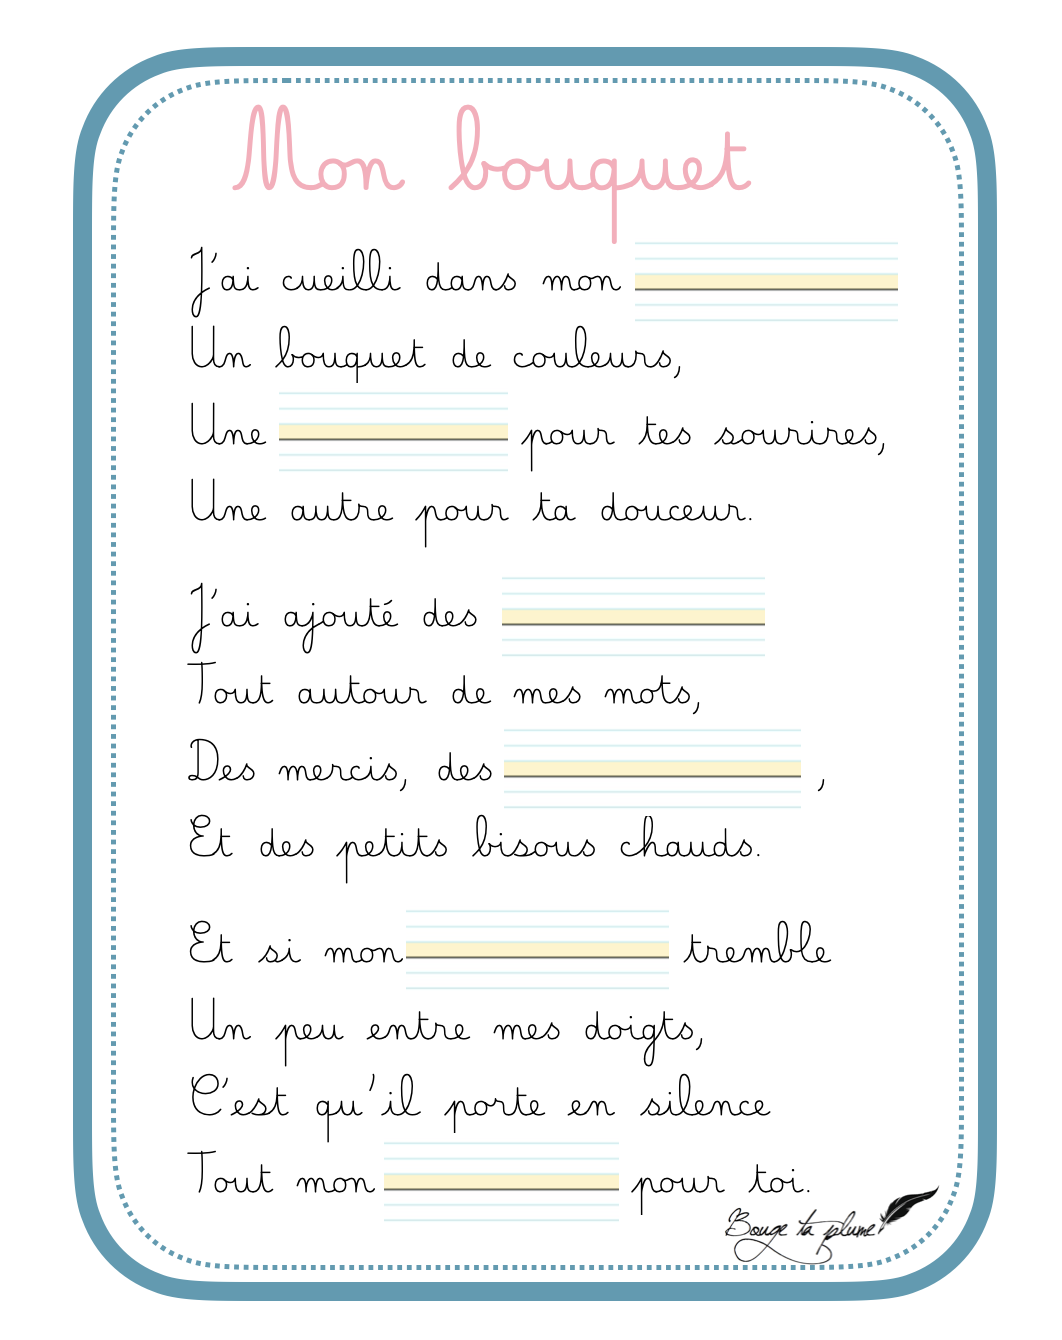 Mon bouquet
J'ai cueilli dans mon
Un bouquet de couleurs,
Une pour tes sourires,
Une autre pour ta douceur.
J'ai ajouté des
Tout autour de mes mots,
Des mercis, des ,
Et des petits bisous chauds.
Et si mon tremble
Un peu entre mes doigts,
C'est qu'il porte en silence
Tout mon pour toi.
Bouge ta plume